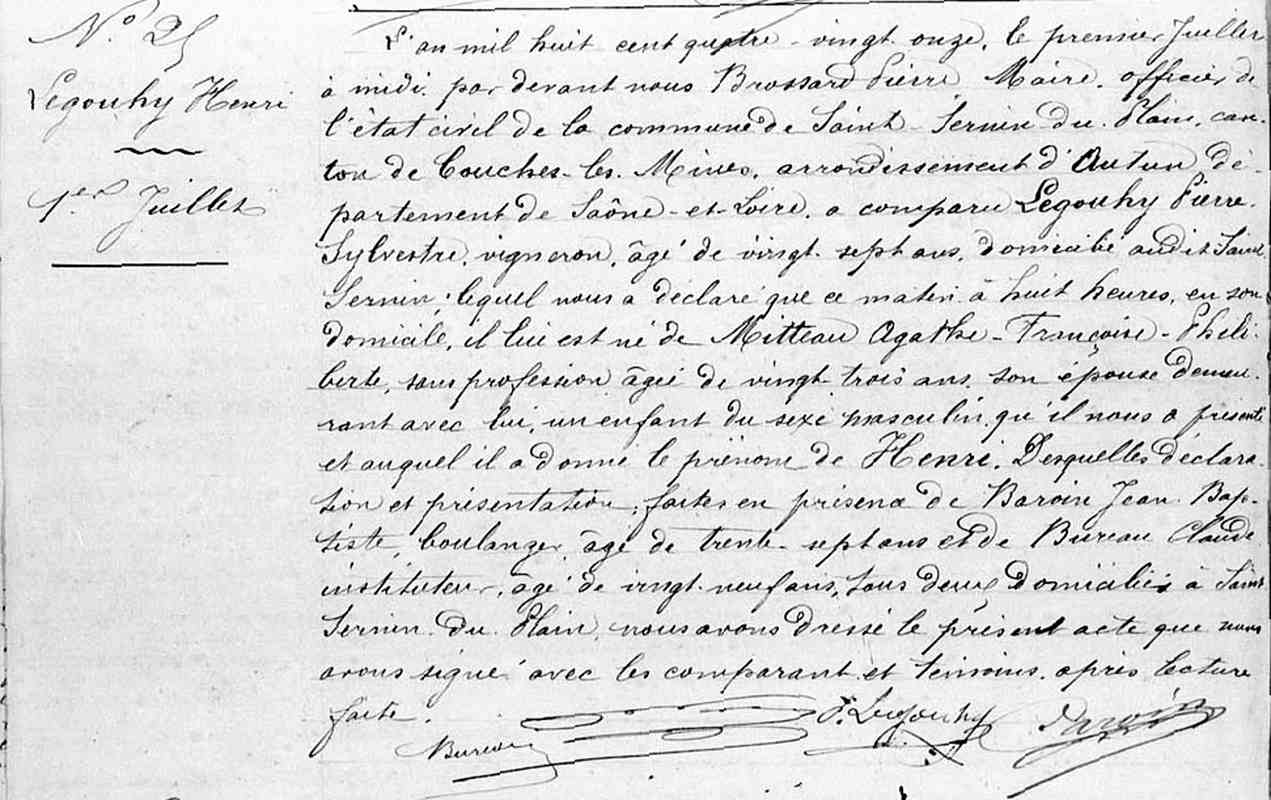 N.º 25
Legouhy Henri
1.er Juillet
L'an mil huit cent quatre-vingt onze, le premier Juillet
à midi, par devant nous Brossard Pierre, Maire, officier de
l'état civil de la commune de Saint-Sernin-du-Plain, can-
ton de Couches-les-Mines, arrondissement d'Autun dé-
partement de Saône-et-Loire, a comparu Legouhy Pierre-
Sylvestre, vigneron, âgé de vingt-sept ans, domicilié audit Saint
Sernin; lequel nous a déclaré que ce matin à huit heures, en son
domicile, il lui est né de Mitteau Agathe-Françoise-Phili-
berte, sans profession âgée de vingt-trois ans, son épouse demeu-
rant avec lui, un enfant du sexe masculin qu'il nous a présenté
et auquel il a donné le prénom de Henri. Desquelles déclara-
tion et présentation, faites en présence de Baroin Jean-Bap-
tiste, boulanger, âgé de trente-sept ans et de Bureau Claude
instituteur, âgé de vingt-neuf ans, tous deux domiciliés à Saint
Sernin-du-Plain, nous avons dressé le présent acte que nous
avons signé avec les comparant et témoins, après lecture
faite.
P. Legouhy
Baroin
Bureau